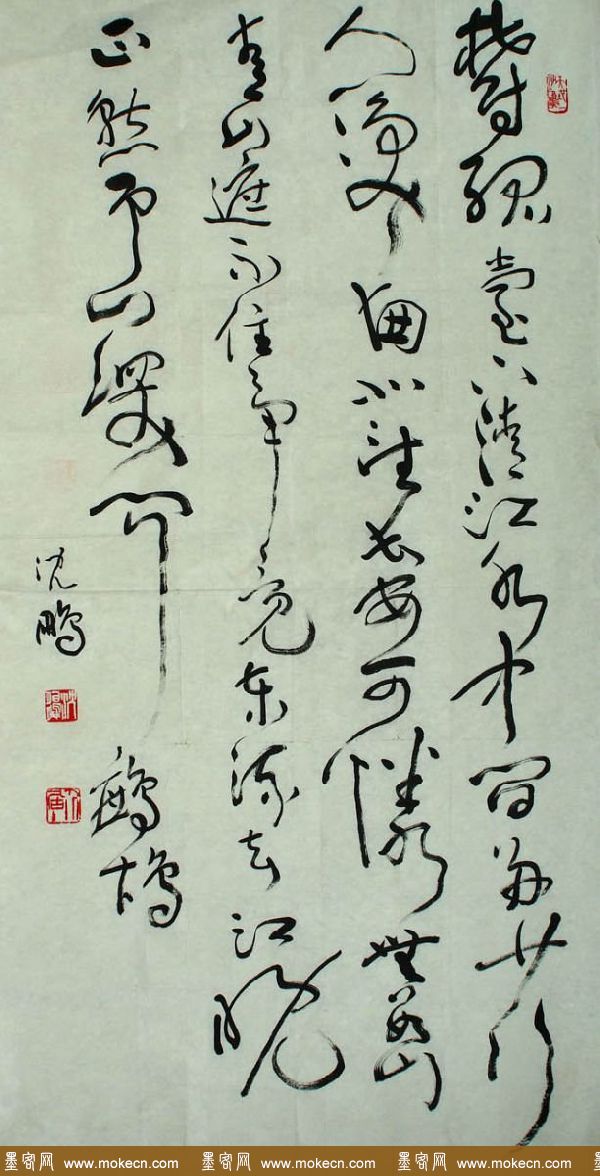 鬱孤臺下清江水中間多少行
人淚西北望長安可憐無數山
青山遮不住畢竟東流去江晚
正愁予山深聞鷓鴣
沈鵬
墨客网 www.mokecn.com 墨客网 www.mokecn.com 墨客网 www.mokecn.com